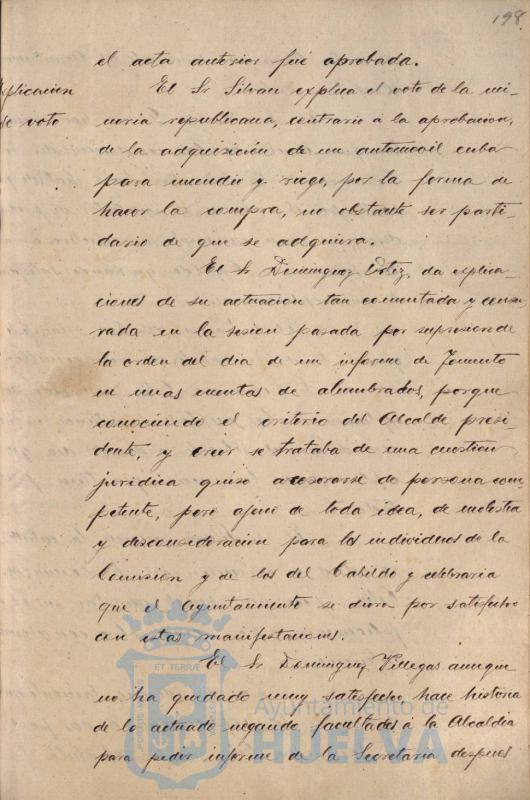 198
el acta anterior fué aprobada.
Explicacion
de voto
El Sr Silvan explica el voto de la mi-
noria republicana, contrario á la aprobacion,
de la adquisición de un automovil cuba
para incendio y riego, por la forma de
hacer la compra, no obstante ser parti-
dario de que se adquiera.
El Sr Dominguez Ortiz, da explica-
ciones de su actuación tan comentada y censu-
rada en la sesion pasada por supresion de
la orden del dia de un informe de Fomento
en unas cuentas de alumbrados, porque
conociendo el criterio del Alcalde presi-
dente, y creer se trataba de una cuestion
juridica quiso asesorarse de persona com
petente, pero ajeno de toda idea, de molestia
y desconsideracion para los individuos de la
Comision y de los del Cabildo y celebraria
que el Ayuntamiento se diera por satisfecho
con estas manifestaciones.
El Sr Dominguez Villegas aunque
no ha quedado muy satisfecho, hace historia
de lo actuado negando facultades á la Alcaldia
para pedir informe de la Secretaria despues
ET TERRÆ
Ayuntamiento de
HUELVA